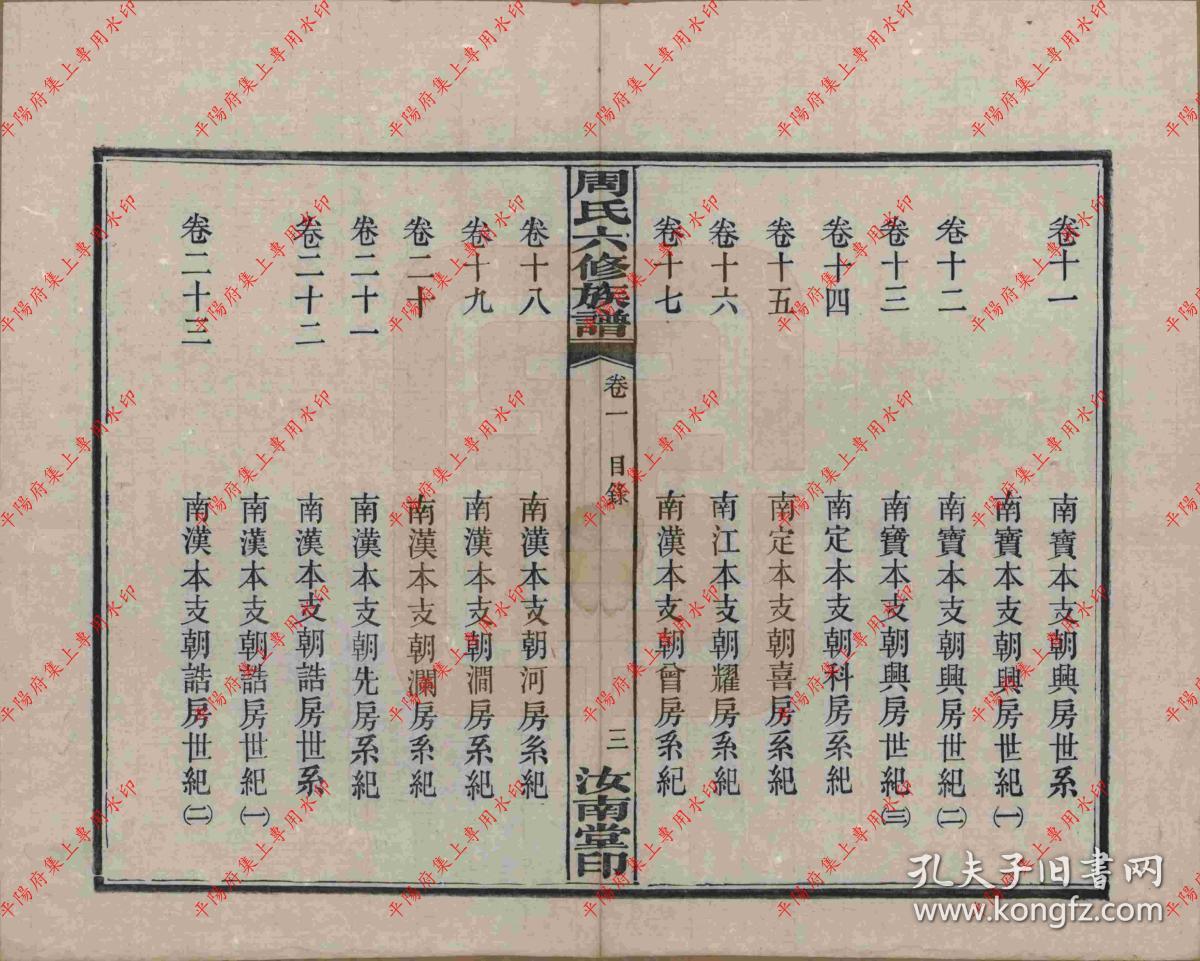 卷十一 南寶本支朝興房世系
南寶本支朝興房世紀(一)
卷十二 南寶本支朝興房世紀(二)
卷十三 南寶本支朝興房世紀(三)
卷十四 南定本支朝科房系紀
卷十五 南定本支朝喜房系紀
卷十六 南江本支朝耀房系紀
卷十七 南漢本支朝曾房系紀
周氏六修族譜 卷一 目錄 三 汝南堂印
卷十八 南漢本支朝河房系紀
卷十九 南漢本支朝澗房系紀
卷二十 南漢本支朝瀾房系紀
卷二十一 南漢本支朝先房系紀
卷二十二 南漢本支朝誥房世系
南漢本支朝誥房世紀(一)
卷二十三 南漢本支朝誥房世紀(二)
平陽府集上專用水印
孔夫子旧书网
www.kongfz.com